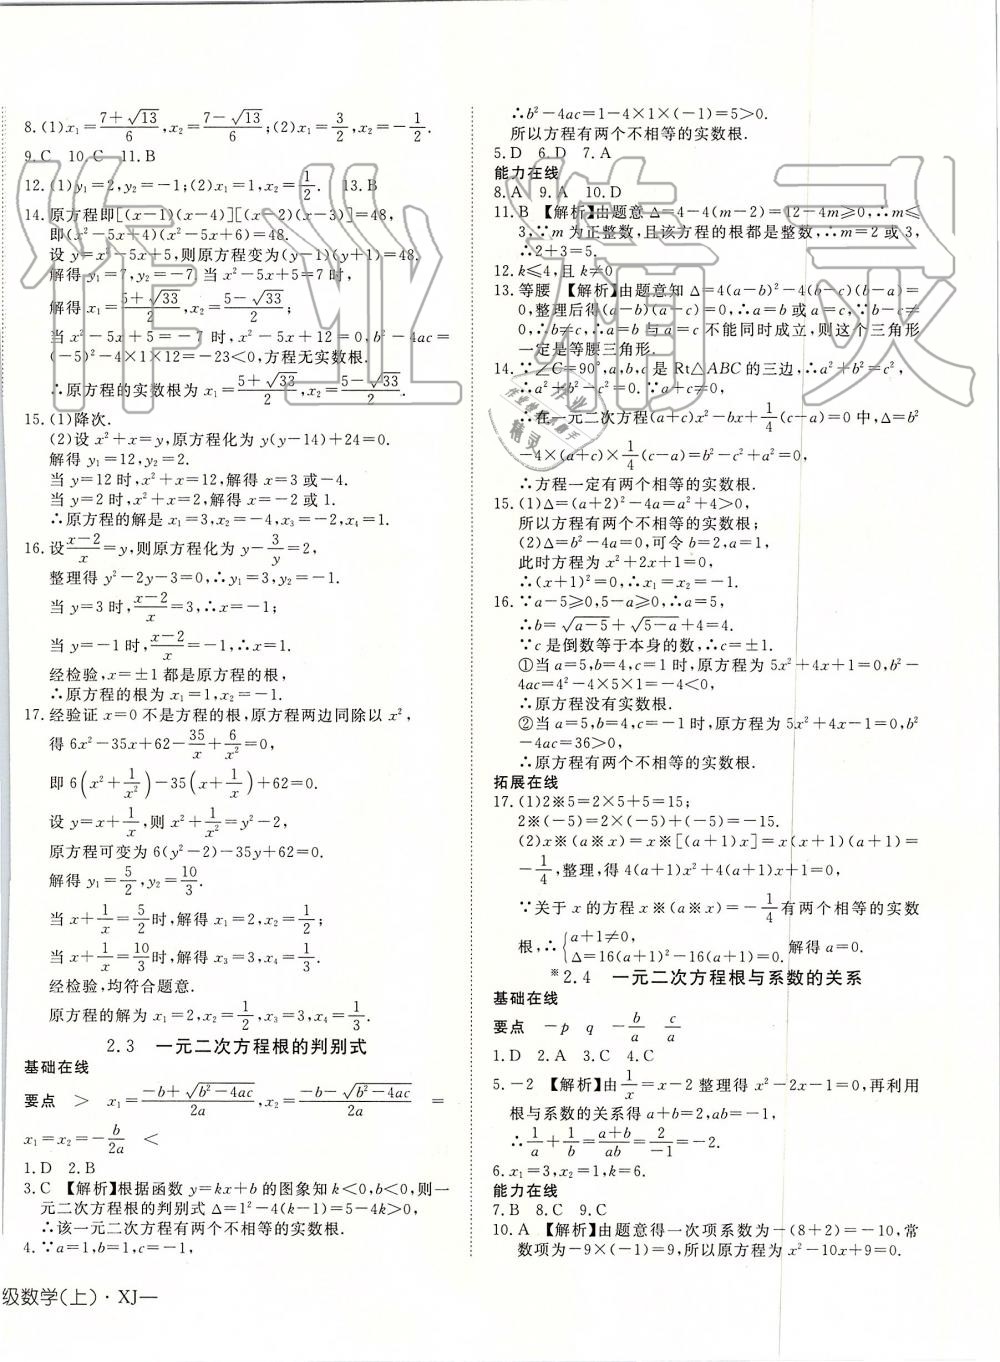 8.(1)x₁=(7+√13)/6,x₂=(7-√13)/6;(2)x₁=3/2,x₂=-1/2.
9.C 10.C 11.B
12.(1)y₁=2,y₂=-1;(2)x₁=1,x₂=1/2. 13.B
14.原方程即[(x-1)(x-4)][(x-2)(x-3)]=48,
即(x²-5x+4)(x²-5x+6)=48.
设 y=x²-5x+5,则原方程变为(y-1)(y+1)=48.
解得 y₁=7,y₂=-7.当 x²-5x+5=7 时,
解得 x₁=(5+√33)/2,x₂=(5-√33)/2;
当 x²-5x+5=-7 时,x²-5x+12=0,b²-4ac=
(-5)²-4×1×12=-23<0,方程无实数根.
∴原方程的实数根为 x₁=(5+√33)/2,x₂=(5-√33)/2.
15.(1)降次.
(2)设 x²+x=y,原方程化为 y(y-14)+24=0.
解得 y₁=12,y₂=2.
当 y=12 时,x²+x=12,解得 x=3 或-4.
当 y=2 时,x²+x=2,解得 x=-2 或 1.
∴原方程的解是 x₁=3,x₂=-4,x₃=-2,x₄=1.
16.设(x-2)/x=y,则原方程化为 y-3/y=2,
整理得 y²-2y-3=0,∴y₁=3,y₂=-1.
当 y=3 时,(x-2)/x=3,∴x=-1;
当 y=-1 时,(x-2)/x=-1,∴x=1.
经检验,x=±1 都是原方程的根,
∴原方程的根为 x₁=1,x₂=-1.
17.经验证 x=0 不是方程的根,原方程两边同除以 x²,
得 6x²-35x+62-35/x+6/x²=0,
即 6(x²+1/x²)-35(x+1/x)+62=0.
设 y=x+1/x,则 x²+1/x²=y²-2,
原方程可变为 6(y²-2)-35y+62=0.
解得 y₁=5/2,y₂=10/3.
当 x+1/x=5/2时,解得 x₁=2,x₂=1/2;
当 x+1/x=10/3时,解得 x₃=3,x₄=1/3.
经检验,均符合题意.
原方程的解为 x₁=2,x₂=1/2,x₃=3,x₄=1/3.
2.3 一元二次方程根的判别式
基础在线
要点 > x₁=(-b+√(b²-4ac))/2a,x₂=(-b-√(b²-4ac))/2a =
x₁=x₂=-b/2a <
1.D 2.B
3.C 【解析】根据函数 y=kx+b 的图象知 k<0,b<0,则一
元二次方程根的判别式 Δ=1²-4(k-1)=5-4k>0,
∴该一元二次方程有两个不相等的实数根.
4.∵a=1,b=1,c=-1,
∴b²-4ac=1-4×1×(-1)=5>0.
所以方程有两个不相等的实数根.
5.D 6.D 7.A
能力在线
8.A 9.A 10.D
11.B 【解析】由题意 Δ=4-4(m-2)=12-4m≥0,∴m≤
3,∵m 为正整数,且该方程的根都是整数,∴m=2 或 3,
∴2+3=5.
12.k≤4,且 k≠0
13.等腰 【解析】由题意知 Δ=4(a-b)²-4(b-c)(b-a)=
0,整理后得(a-b)(a-c)=0,∴a=b或a=c,∵b-c≠
0,∴b≠c,∴a=b 与 a=c 不能同时成立,则这个三角形
一定是等腰三角形.
14.∵∠C=90°,a,b,c 是 Rt△ABC 的三边,∴a²+b²=c²,
∴a²+b²-c²=0.∵a+c≠0,
∴在一元二次方程(a+c)x²-bx+1/4(c-a)=0 中,Δ=b²
-4×(a+c)×1/4(c-a)=b²-c²+a²=0,
∴方程一定有两个相等的实数根.
15.(1)Δ=(a+2)²-4a=a²+4>0,
所以方程有两个不相等的实数根;
(2)Δ=b²-4a=0,可令 b=2,a=1,
此时方程为 x²+2x+1=0,
∴(x+1)²=0,∴x₁=x₂=-1.
16.∵a-5≥0,5-a≥0,∴a=5,
∴b=√(a-5)+√(5-a)+4=4.
∵c 是倒数等于本身的数,∴c=±1.
①当 a=5,b=4,c=1 时,原方程为 5x²+4x+1=0,b²-
4ac=4²-4×5×1=-4<0,
∴原方程没有实数根.
②当 a=5,b=4,c=-1 时,原方程为 5x²+4x-1=0,b²
-4ac=36>0,
∴原方程有两个不相等的实数根.
拓展在线
17.(1)2※5=2×5+5=15;
2※(-5)=2×(-5)+(-5)=-15.
(2)x※(a※x)=x※[(a+1)x]=x(x+1)(a+1)=
-1/4,整理,得 4(a+1)x²+4(a+1)x+1=0.
∵关于 x 的方程 x※(a※x)=-1/4有两个相等的实数
根,∴{a+1≠0, Δ=16(a+1)²-16(a+1)=0. 解得 a=0.
※2.4 一元二次方程根与系数的关系
基础在线
要点 -p q -b/a c/a
1.D 2.A 3.C 4.C
5.-2 【解析】由1/x=x-2 整理得 x²-2x-1=0,再利用
根与系数的关系得 a+b=2,ab=-1,
∴1/a+1/b=(a+b)/ab=2/-1=-2.
6.x₁=3,x₂=1,k=6.
能力在线
7.B 8.C 9.C
10.A 【解析】由题意得一次项系数为-(8+2)=-10,常
数项为-9×(-1)=9,所以原方程为 x²-10x+9=0.
级数学(上)·XJ—
作业精灵